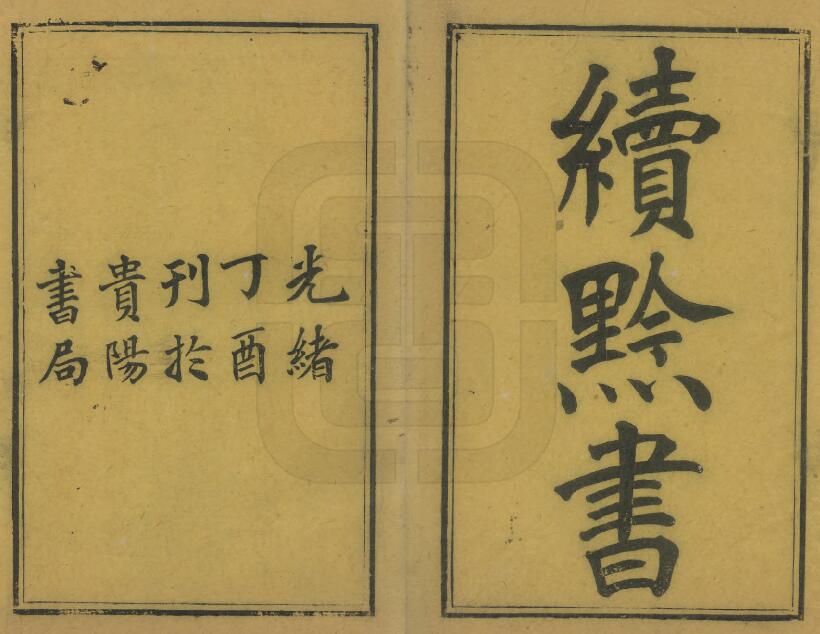 續黔書
光緒
丁酉
刊於
貴陽
書局